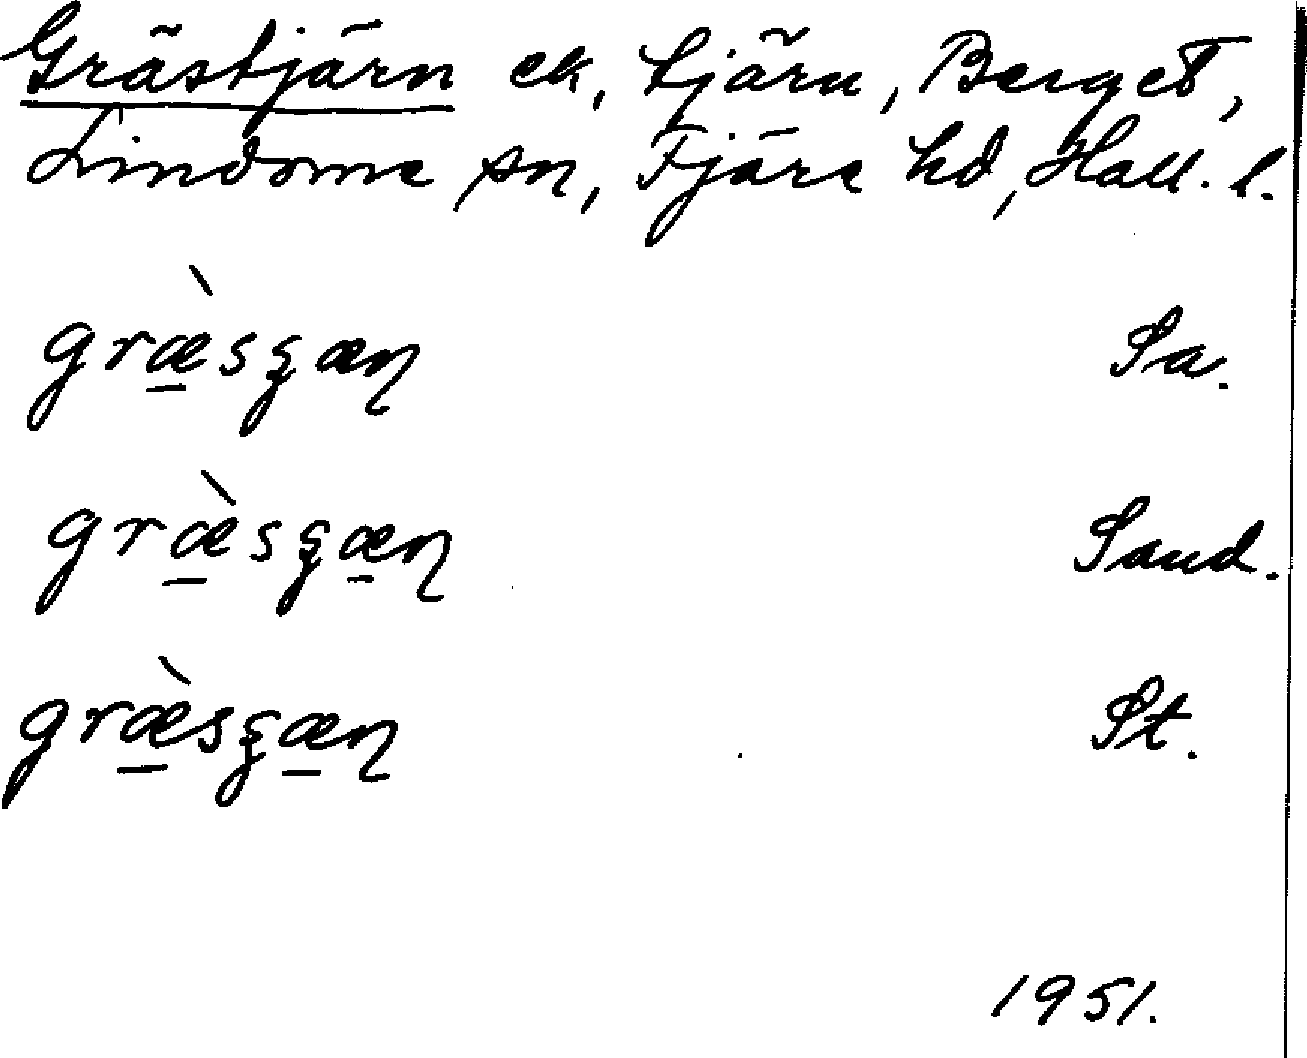 Grästjärn ek, tjärn, Berget,
Lindome sn, Fjäre hd, Hall. l.
græ̠̀sʂæɳ Sa.
græ̠̀sʂæ̠ɳ Sand.
græ̠̀sʂæ̠ɳ St.
1951.